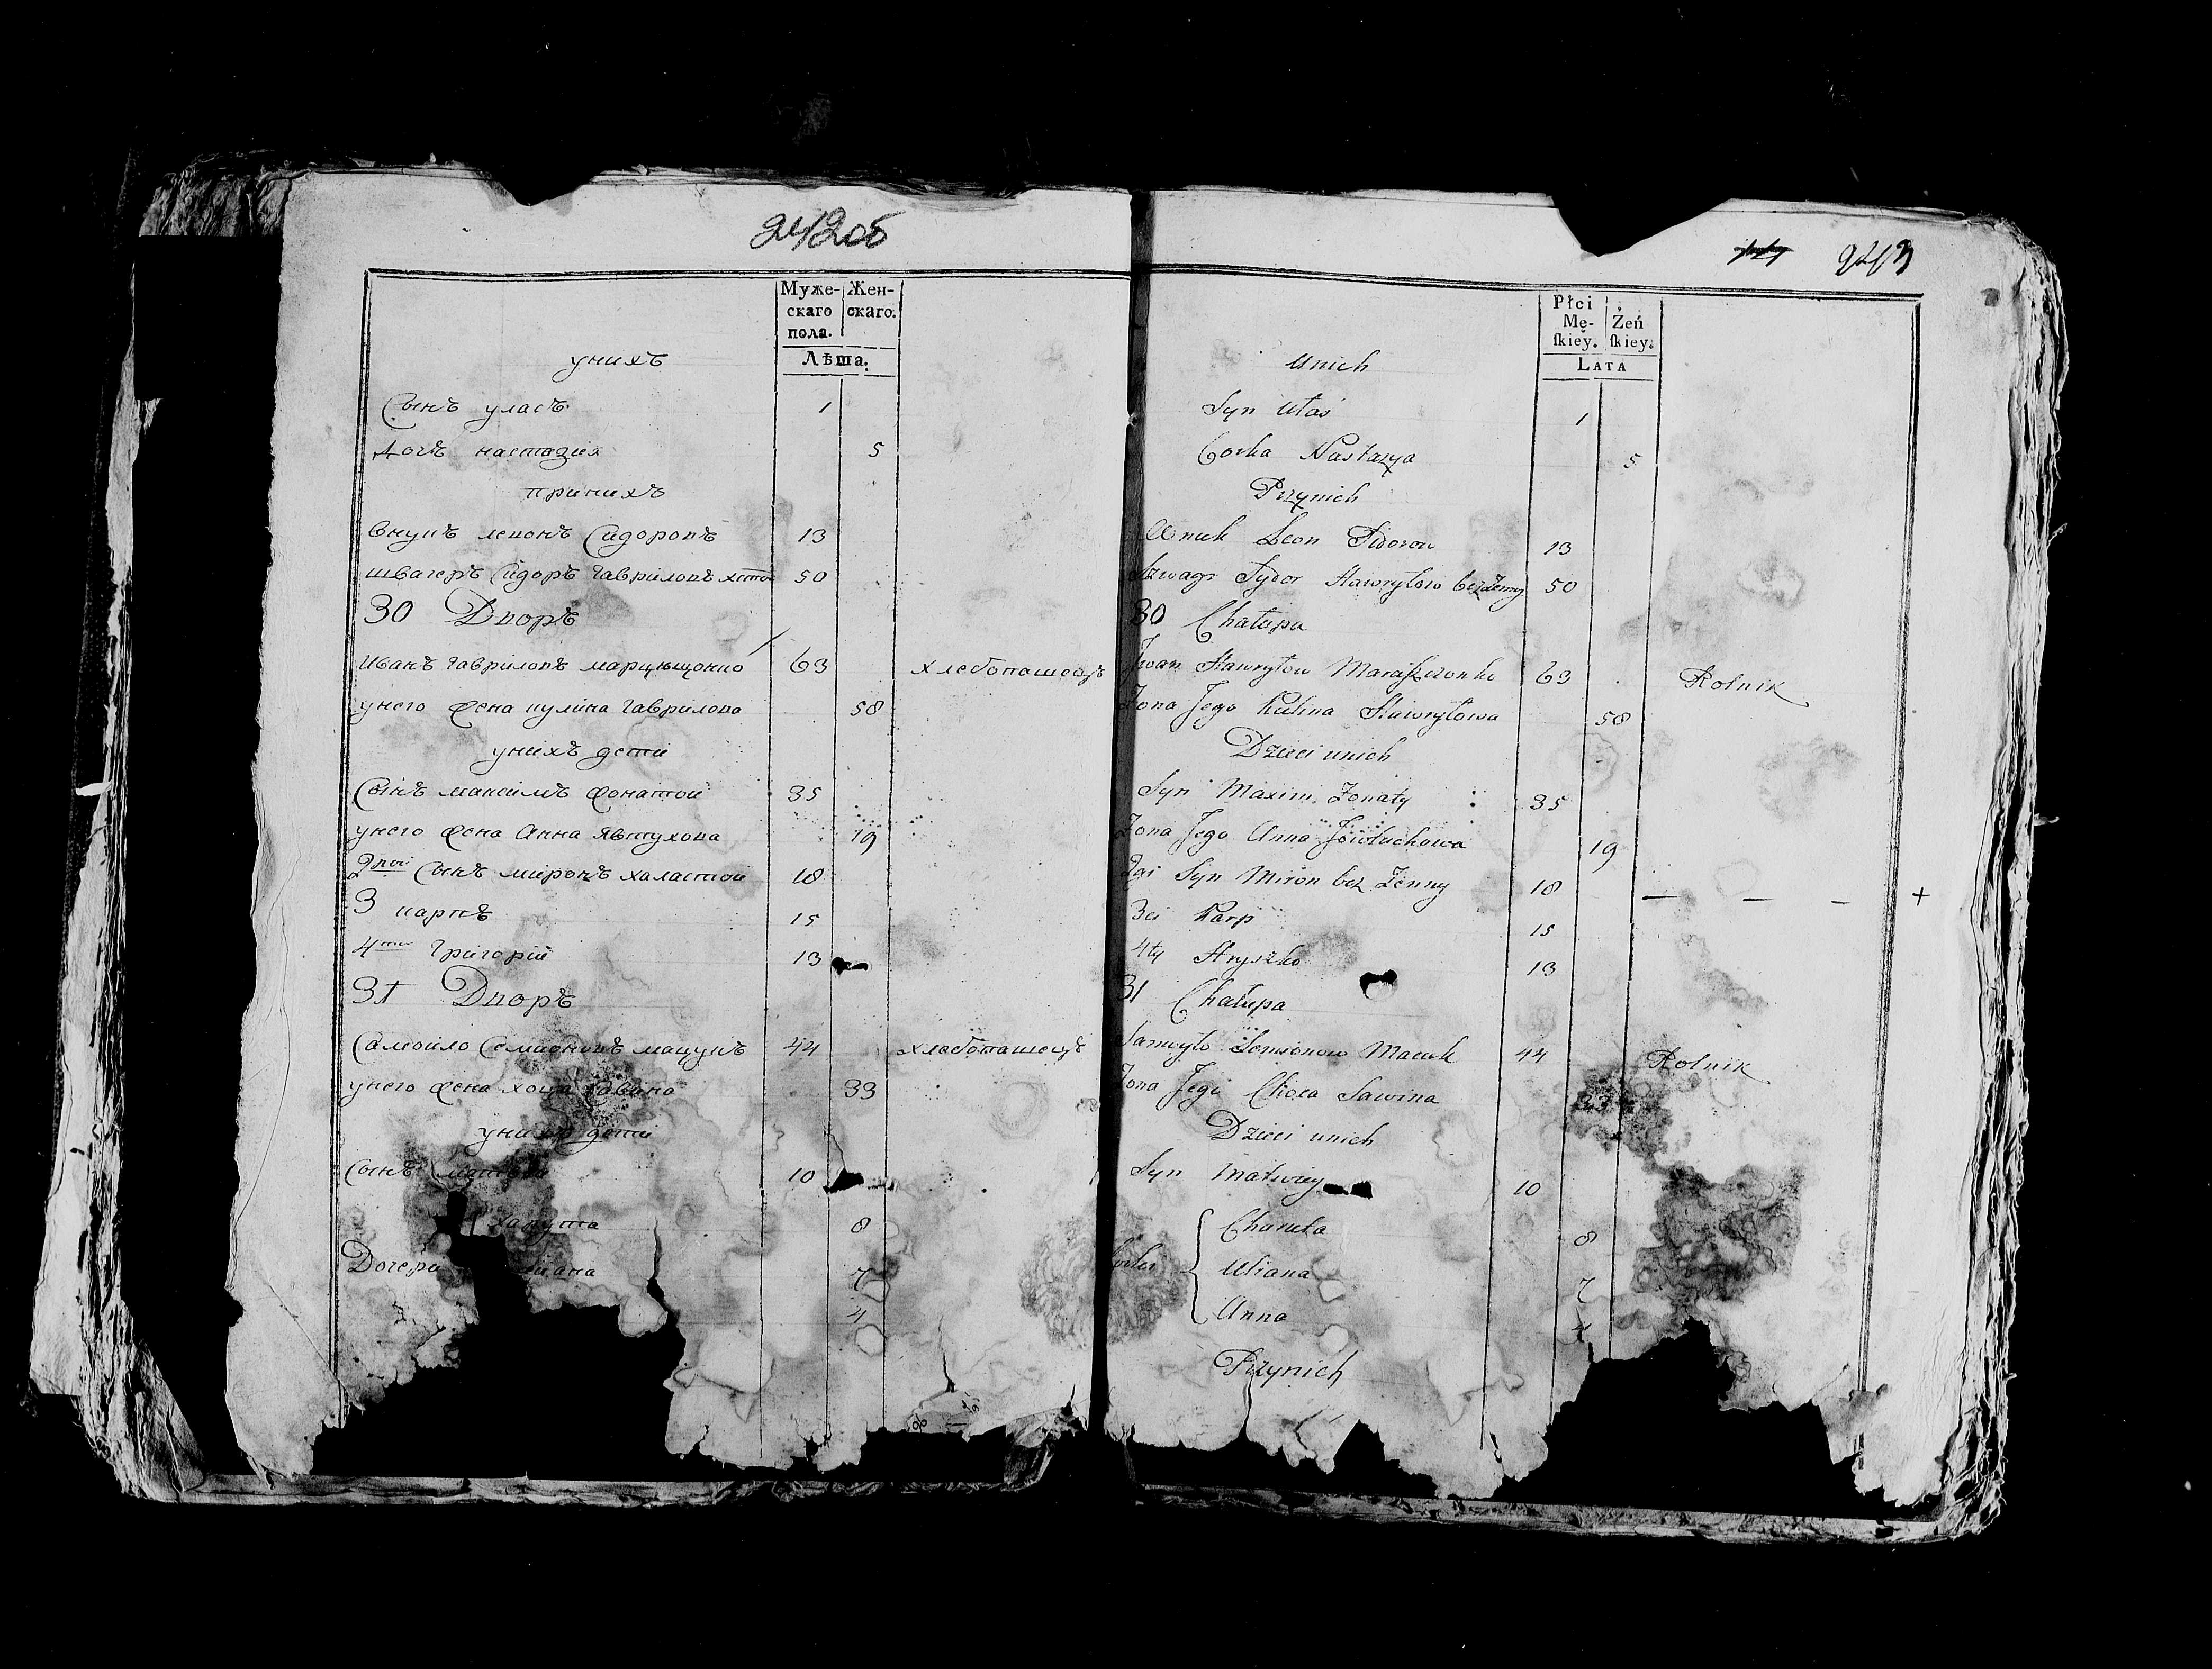 242об
Муже-
скаго
пола.
Жен-
скаго.
Лѣта.
унихъ
Сынъ уласъ 1
дочъ настазия 5
принихъ
внукъ левонъ Сидоровъ 13
швагеръ Сидоръ Гавриловъ 50
30 Дворъ
Иванъ Гавриловъ 63 хлебопашецъ
унего жена кулина Гаврилова 58
унихъ дети
Сынъ максимъ жонатой 35
унего жена Анна Явтухова 19
2гой Сынъ миронъ халастой 18
3 карпъ 15
4тый Григорий 13
31 Дворъ
Самойло Семионовъ мацукъ 44 хлебопашецъ
унего жена хоца Савина 33
унихъ дети
Сынъ 10
харута 8
Дочери 7
4
243
Płci
Mę-
ſkiey.
Żeń
ſkiey.
LATA
Unich
Syn Ułas 1
Corka Nastazya 5
Przynich
Wnuk Leon Sidorow 13
Szwagr Sydor Hawryłow bezżenny 50
30 Chałupa
Iwan Hawryłow 63 Rolnik
Zona Jego Kulina Hawryłowa 58
Dzieci unich
Syn Maxim Zonaty 35
Zona Jego Anna Jowtuchowa 19
2gi Syn Miron bez Zenny 18 — — — +
3ci Karp 15
4ty Hryszko 13
31 Chałupa
Samoyło Semionow Macuk 44 Rolnik
Zona Jego Choca Sawina 33
Dzieci unich
Syn Matwiey 10
Charuta 8
Uliana 7
Anna 4
Przynich